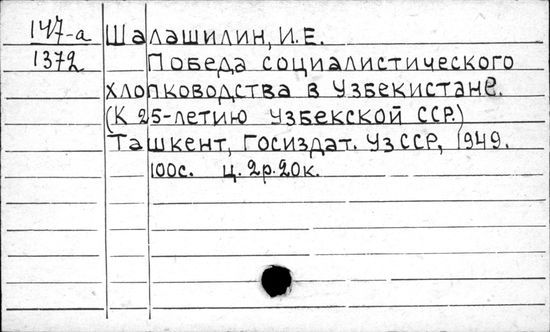 147-а Шалашилин, И.Е.
1372 Победа социалистического
хлопководства в Узбекистане.
(К 25-летию Узбекской ССР.)
Ташкент, Госиздат. УзССР, 1949.
100с. ц. 2р.20к.